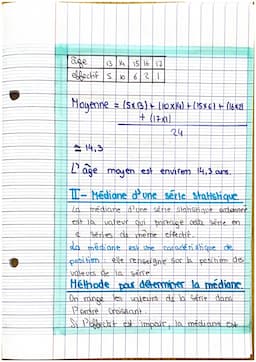 âge 13 14 15 16 17
effectif 5 10 6 2 1
Moyenne = (5x13) + (10x14) + (15x6) + (16x2)
+ (17x1)
24
≈ 14,3
L'âge moyen est environ 14,3 ans.
II - Médiane d'une série statistique
La médiane d'une série statistique ordonnée
est la valeur qui partage cette série en
2 séries de même effectif.
La médiane est une caractéristique de
position : elle renseigne sur la position des
valeurs de la série.
Méthode pour déterminer la médiane
On range les valeurs de la série dans
l'ordre croissant.
Si l'effectif est impair, la médiane est